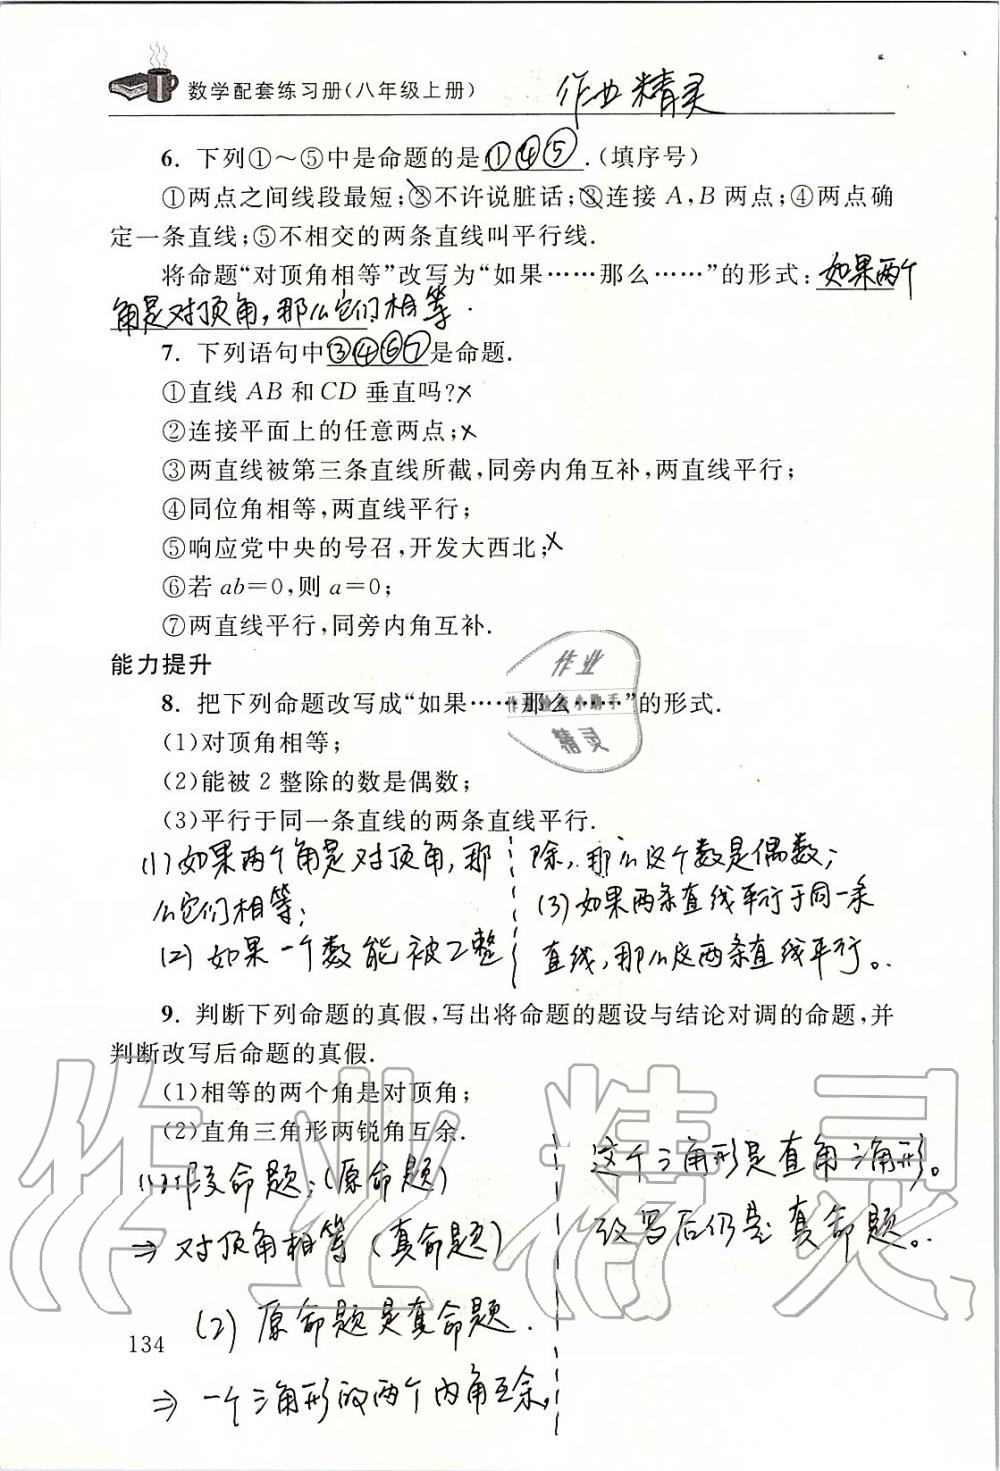 数学配套练习册(八年级上册)
作业精灵
6. 下列①～⑤中是命题的是①④⑤.(填序号)
①两点之间线段最短;②不许说脏话;③连接 A,B 两点;④两点确
定一条直线;⑤不相交的两条直线叫平行线.
将命题“对顶角相等”改写为“如果……那么……”的形式:如果两个
角是对顶角,那么它们相等.
7. 下列语句中③④⑥⑦是命题.
①直线 AB 和 CD 垂直吗?×
②连接平面上的任意两点;×
③两直线被第三条直线所截,同旁内角互补,两直线平行;
④同位角相等,两直线平行;
⑤响应党中央的号召,开发大西北;×
⑥若 ab=0,则 a=0;
⑦两直线平行,同旁内角互补.
能力提升
8. 把下列命题改写成“如果……那么……”的形式.
(1)对顶角相等;
(2)能被 2 整除的数是偶数;
(3)平行于同一条直线的两条直线平行.
(1)如果两个角是对顶角,那
么它们相等;
(2)如果一个数能被2整
除,那么这个数是偶数;
(3)如果两条直线平行于同一条
直线,那么这两条直线平行。
9. 判断下列命题的真假,写出将命题的题设与结论对调的命题,并
判断改写后命题的真假.
(1)相等的两个角是对顶角;
(2)直角三角形两锐角互余.
(1)假命题;(原命题)
⇒ 对顶角相等(真命题)
(2)原命题是真命题.
⇒ 一个三角形的两个内角互余,
这个三角形是直角三角形。
改写后仍是真命题。
134
作业
作业检查小助手
精灵
作业精灵